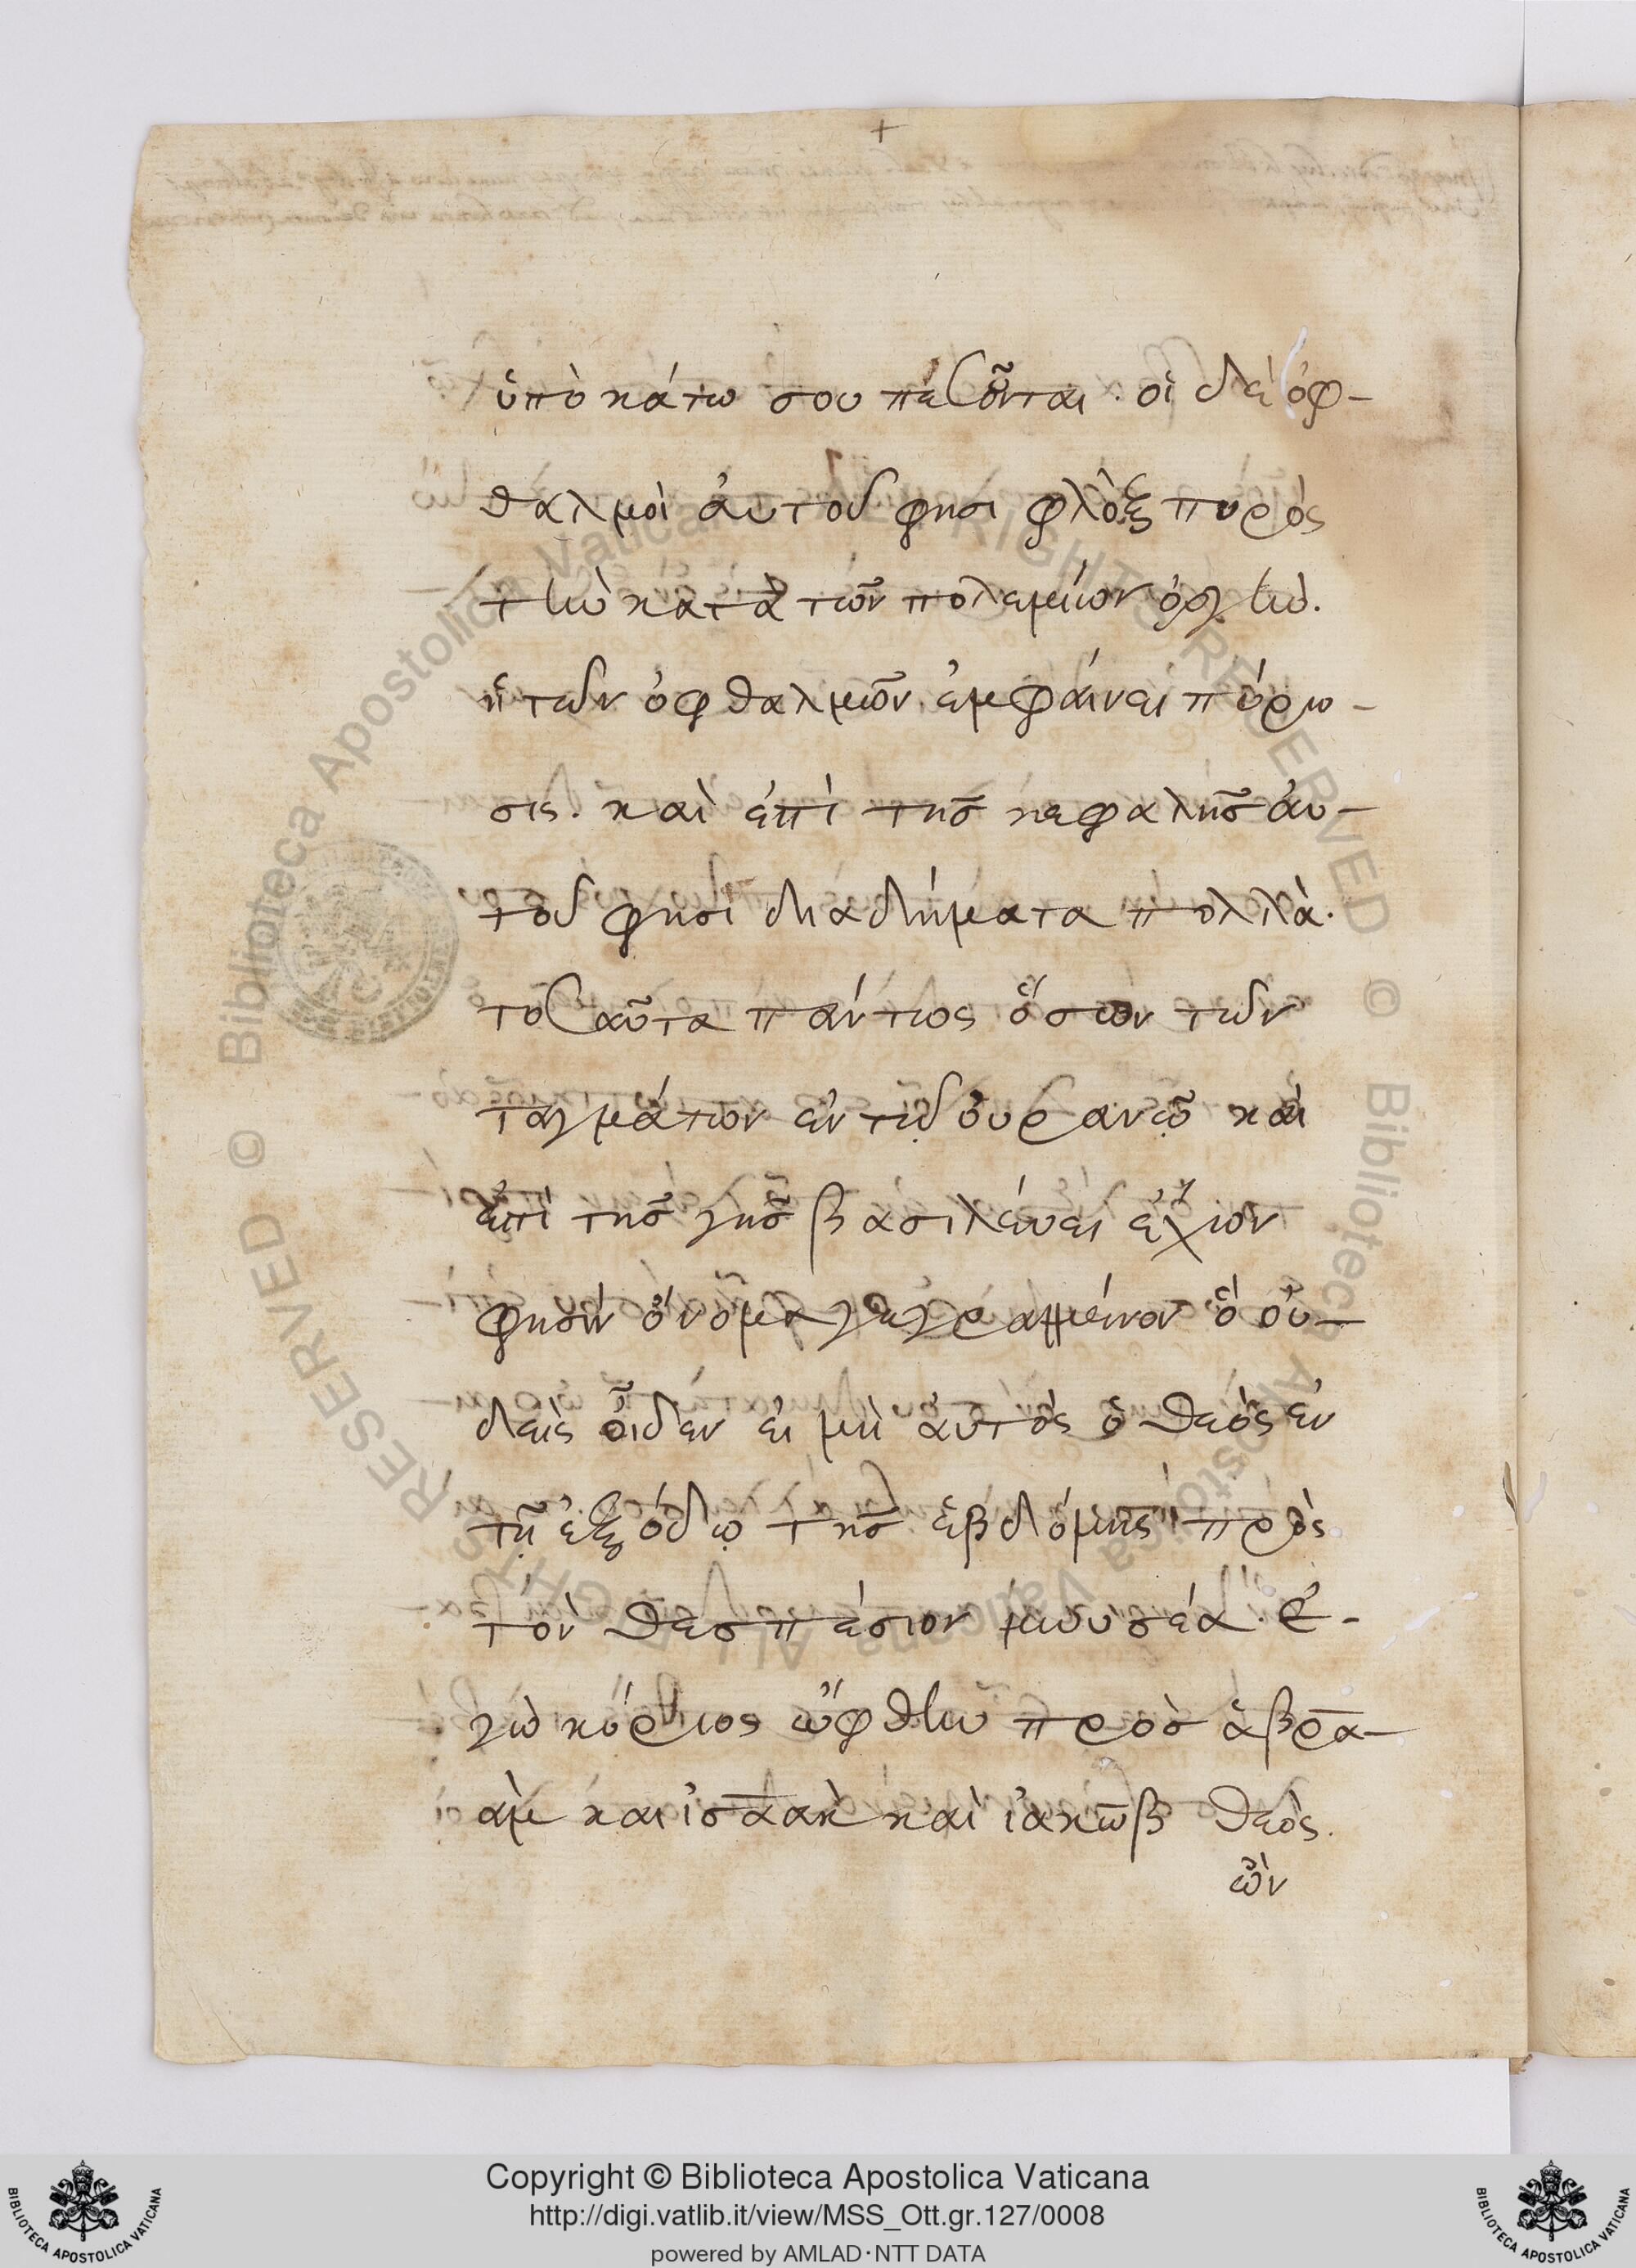 +
ὑποκάτω σου πεσοῦνται· οἱ δὲ ὀφ-
θαλμοὶ ἀυτοῦ φησι φλὸξ πυρὸς
τὴν κατὰ τῶν πολεμίων ὀργὴν.
ἡ τῶν ὀφθαλμῶν ἐμφαίνει πύρω-
σις. καὶ ἐπὶ τῆς κεφαλῆς ἀυ-
τοῦ φησὶ διαδήματα πολλὰ.
τοσαῦτα πάντως ὅσων τῶν
ταγμάτων ἐν τῷ ὀυρανῷ καὶ
ἐπὶ τῆς γῆς βασιλεύει ἔχων
φησὶν ὄνομα γεγραμμένον ὃ οὐ-
δεὶς οἶδεν εἰ μὴ ἀυτὸς ὁ θεὸς ἐν
τῇ ἐξόδῳ τῆς ἑβδόμης πρὸς
τὸν θεσπέσιον μωυσέα ἐ-
γὼ κύριος ὤφθην πρὸς ἀβρα-
ὰμ και ἰσαὰκ καὶ ἰακὼβ θεὸς.
ὢν
© Biblioteca Apostolica Vaticana ALL RIGHTS RESERVED © Biblioteca Apostolica Vaticana ALL RIGHTS RESERVED
Copyright © Biblioteca Apostolica Vaticana
http://digi.vatlib.it/view/MSS_Ott.gr.127/0008
powered by AMLAD·NTT DATA
BIBLIOTECA APOSTOLICA VATICANA
BIBLIOTECA APOSTOLICA VATICANA